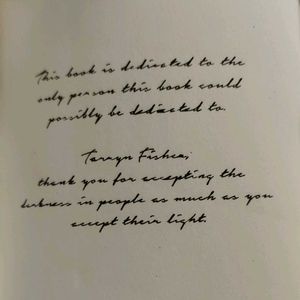 This book is dedicated to the
only person this book could
possibly be dedicated to.
Tarryn Fisher,
thank you for accepting the
darkness in people as much as you
accept their light.